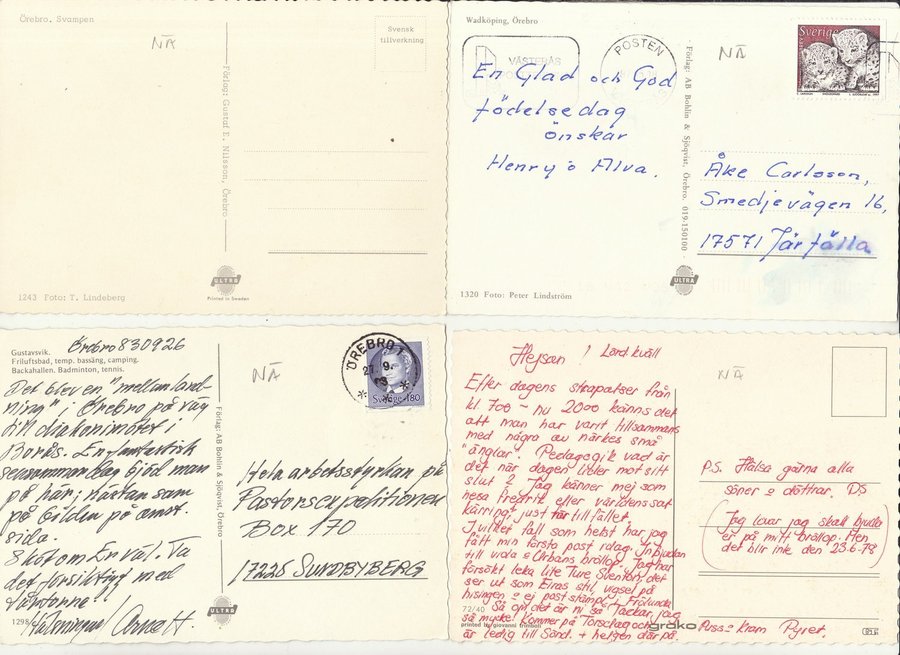 Örebro. Svampen
NÄ
Svensk
tillverkning
Förlag: Gustaf E. Nilsson, Örebro
ULTRA
Printed in Sweden
1243 Foto: T. Lindeberg
Wadköping, Örebro
NÄ
VÄSTERÅS
POSTEN
Sverige
En Glad och God
födelsedag
önskar
Henry o Alva.
Förlag: AB Bohlin & Sjöqvist, Örebro. 019/150100
Åke Carlsson,
Smedjevägen 16,
17571 Järfälla
ULTRA
1320 Foto: Peter Lindström
Örebro 830926
Gustavsvik.
Friluftsbad, temp. bassäng, camping.
Backahallen. Badminton, tennis.
NÄ
ÖREBRO 1
27. 9.
Sverige 180
Det blev en "mellanland-
ning" i Örebro på väg
till diakonimötet i
Borås. En fantastisk
sensommardag bjöd man
på här; nästan som
på bilden på omst.
sida.
Skot om Er väl. Ta
det försiktigt med
Förlag: AB Bohlin & Sjöqvist, Örebro
Hela arbetsstyrkan på
Pastorsexpeditionen
Box 170
17225 SUNDBYBERG
ULTRA
1298
Arne H.
Hejsan! Lörd. kväll
NÄ
Efter dagens strapatser från
kl 700 - nu 2000 känns det
att man har varit tillsammans
med några av närkes små
"änglar". Pedagogik vad är
det när dagen lider mot sitt
slut? Jag känner mej som
hesa Fredrik eller världens sat
kärring, just till fället.
I vilket fall som helst har jag
fått min första post idag. Inbjudan
till vida o Urbans bröllop. Jag har
försökt leka lite Ture Sventon, det
ser ut som Eiras stil, vigsel på
hisingen o ej poststämpl. i Frölunda
Så opl. det är ni så Tackar jag
så mycke! Kommer på Torsdag och
är ledig till Sönd. + helgen där på.
P.S. Hälsa gärna alla
söner o döttrar. DS
(Jag lovar jag skall bjuda
er på mitt bröllop. Men
det blir inte den 23.6-78)
Puss o Kram Pyret.
72/40
printed by giovanni trimboli
grako